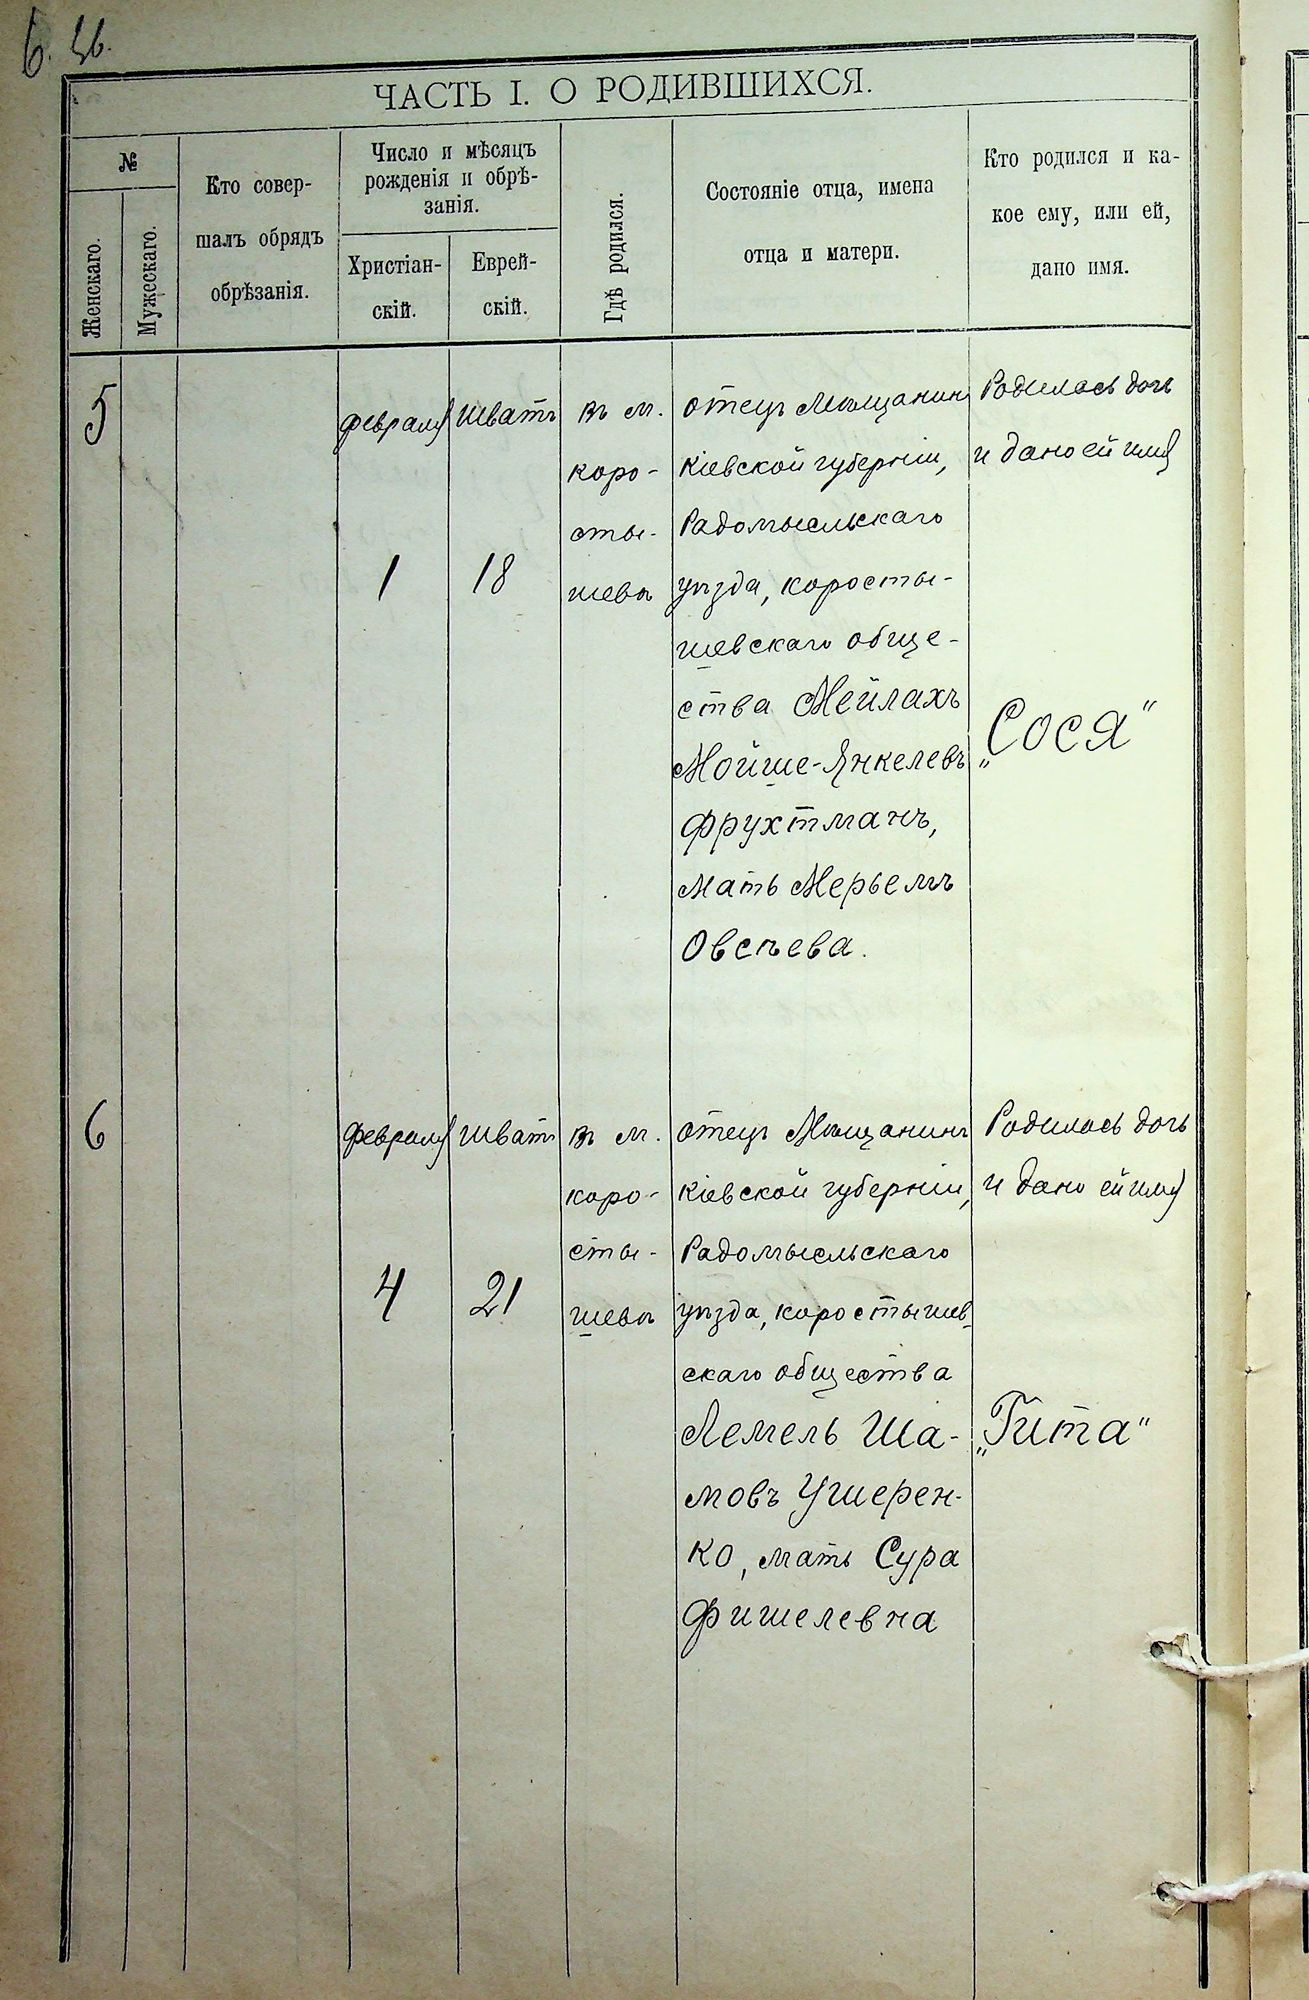 6.
ЧАСТЬ I. О РОДИВШИХСЯ.
№
Женскаго.
Мужескаго.
Кто совер-
шалъ обрядъ
обрѣзанія.
Число и мѣсяцъ
рожденія и обрѣ-
занія.
Христіан-
скій.
Еврей-
скій.
Гдѣ родился.
Состояніе отца, имена
отца и матери.
Кто родился и ка-
кое ему, или ей,
дано имя.
5
февраля
1
Шватъ
18
въ м.
коро-
сты-
шевѣ
отецъ Мѣщанинъ
Кіевской губерніи,
Радомысльскаго
уѣзда, коросты-
шевскаго обще-
ства Мейлахъ
Мойше-Янкелевъ
Фрухтманъ,
мать Мерьемъ
Овсѣева.
Родилась дочь
и дано ей имя
„Сося“
6
февраля
4
Шватъ
21
въ м.
коро-
сты-
шевѣ
отецъ Мѣщанинъ
Кіевской губерніи,
Радомысльскаго
уѣзда, коростышев-
скаго общества
Лемель Ша-
мовъ Ушерен-
ко, мать Сура
Фишелевна
Родилась дочь
и дано ей имя
„Гита“